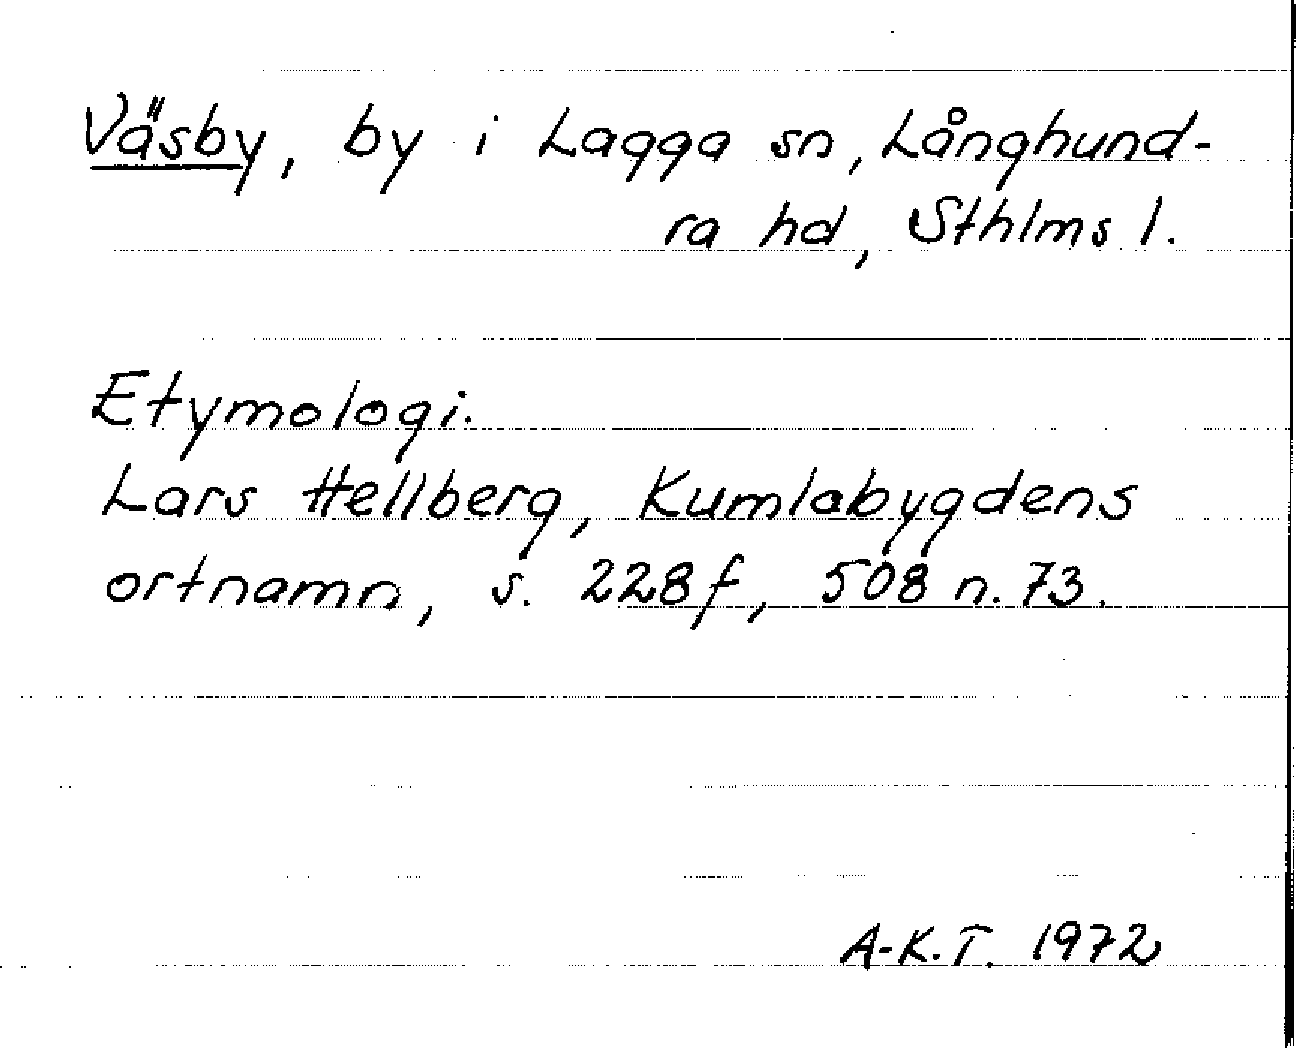 Väsby, by i Lagga sn, Långhund-
ra hd, Sthlms l.
Etymologi.
Lars Hellberg, Kumlabygdens
ortnamn, s. 228f, 508 n. 73.
A-K.T. 1972